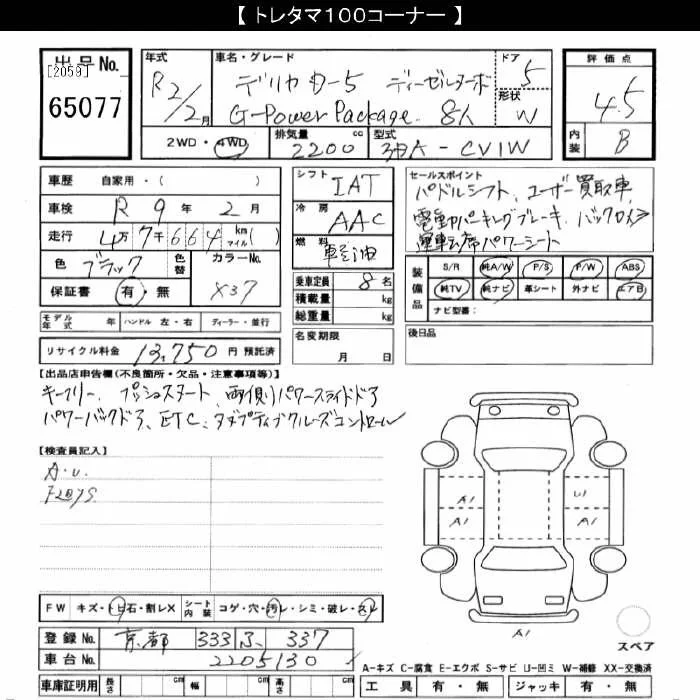 【 トレタマ100コーナー 】
出品No. [2059] 65077
年式 R2/2月
車名・グレード デリカD-5 ディーゼルターボ
G-Power Package 8人
ドア 5
形状 W
評価点 4.5
内装 B
2WD・4WD 排気量 2200 cc 型式 3DA-CV1W
車歴 自家用・( )
車検 R 9 年 2 月
走行 4万7千664 km マイル( )
色 ブラック 色替 カラーNo. X37
保証書 有・無
シフト IAT
冷房 AAC
燃料 軽油
乗車定員 8 名
積載量 kg
総重量 kg
セールスポイント
パドルシフト、ユーザー買取車
電動パーキングブレーキ、バックカメラ
運転席パワーシート
装備品 S/R 純A/W P/S P/W ABS
純TV 純ナビ 革シート 外ナビ エアB
ナビ型番:
モデル年式 年 ハンドル 左・右 ディーラー・並行
名変期限 月 日
後日品
リサイクル料金 13,750 円 預託済
【出品店申告欄(不良箇所・欠品・注意事項等)】
キーフリー、プッシュスタート、両側パワースライドドア
パワーバックドア、ETC、アダプティブクルーズコントロール
【検査員記入】
A.U.
A1 U1
A1 A1
A1
スペア
FW キズ・トビ石・割レX シート内装 コゲ・穴・汚レ・シミ・破レ・スレ
登録No. 京都 333 ふ 337
車台No. 2205130
A―キズ C―腐食 E―エクボ S―サビ U―凹ミ W―補修 XX―交換済
車庫証明用 長さ cm 幅 cm 高さ cm 工具 有・無 ジャッキ 有・無